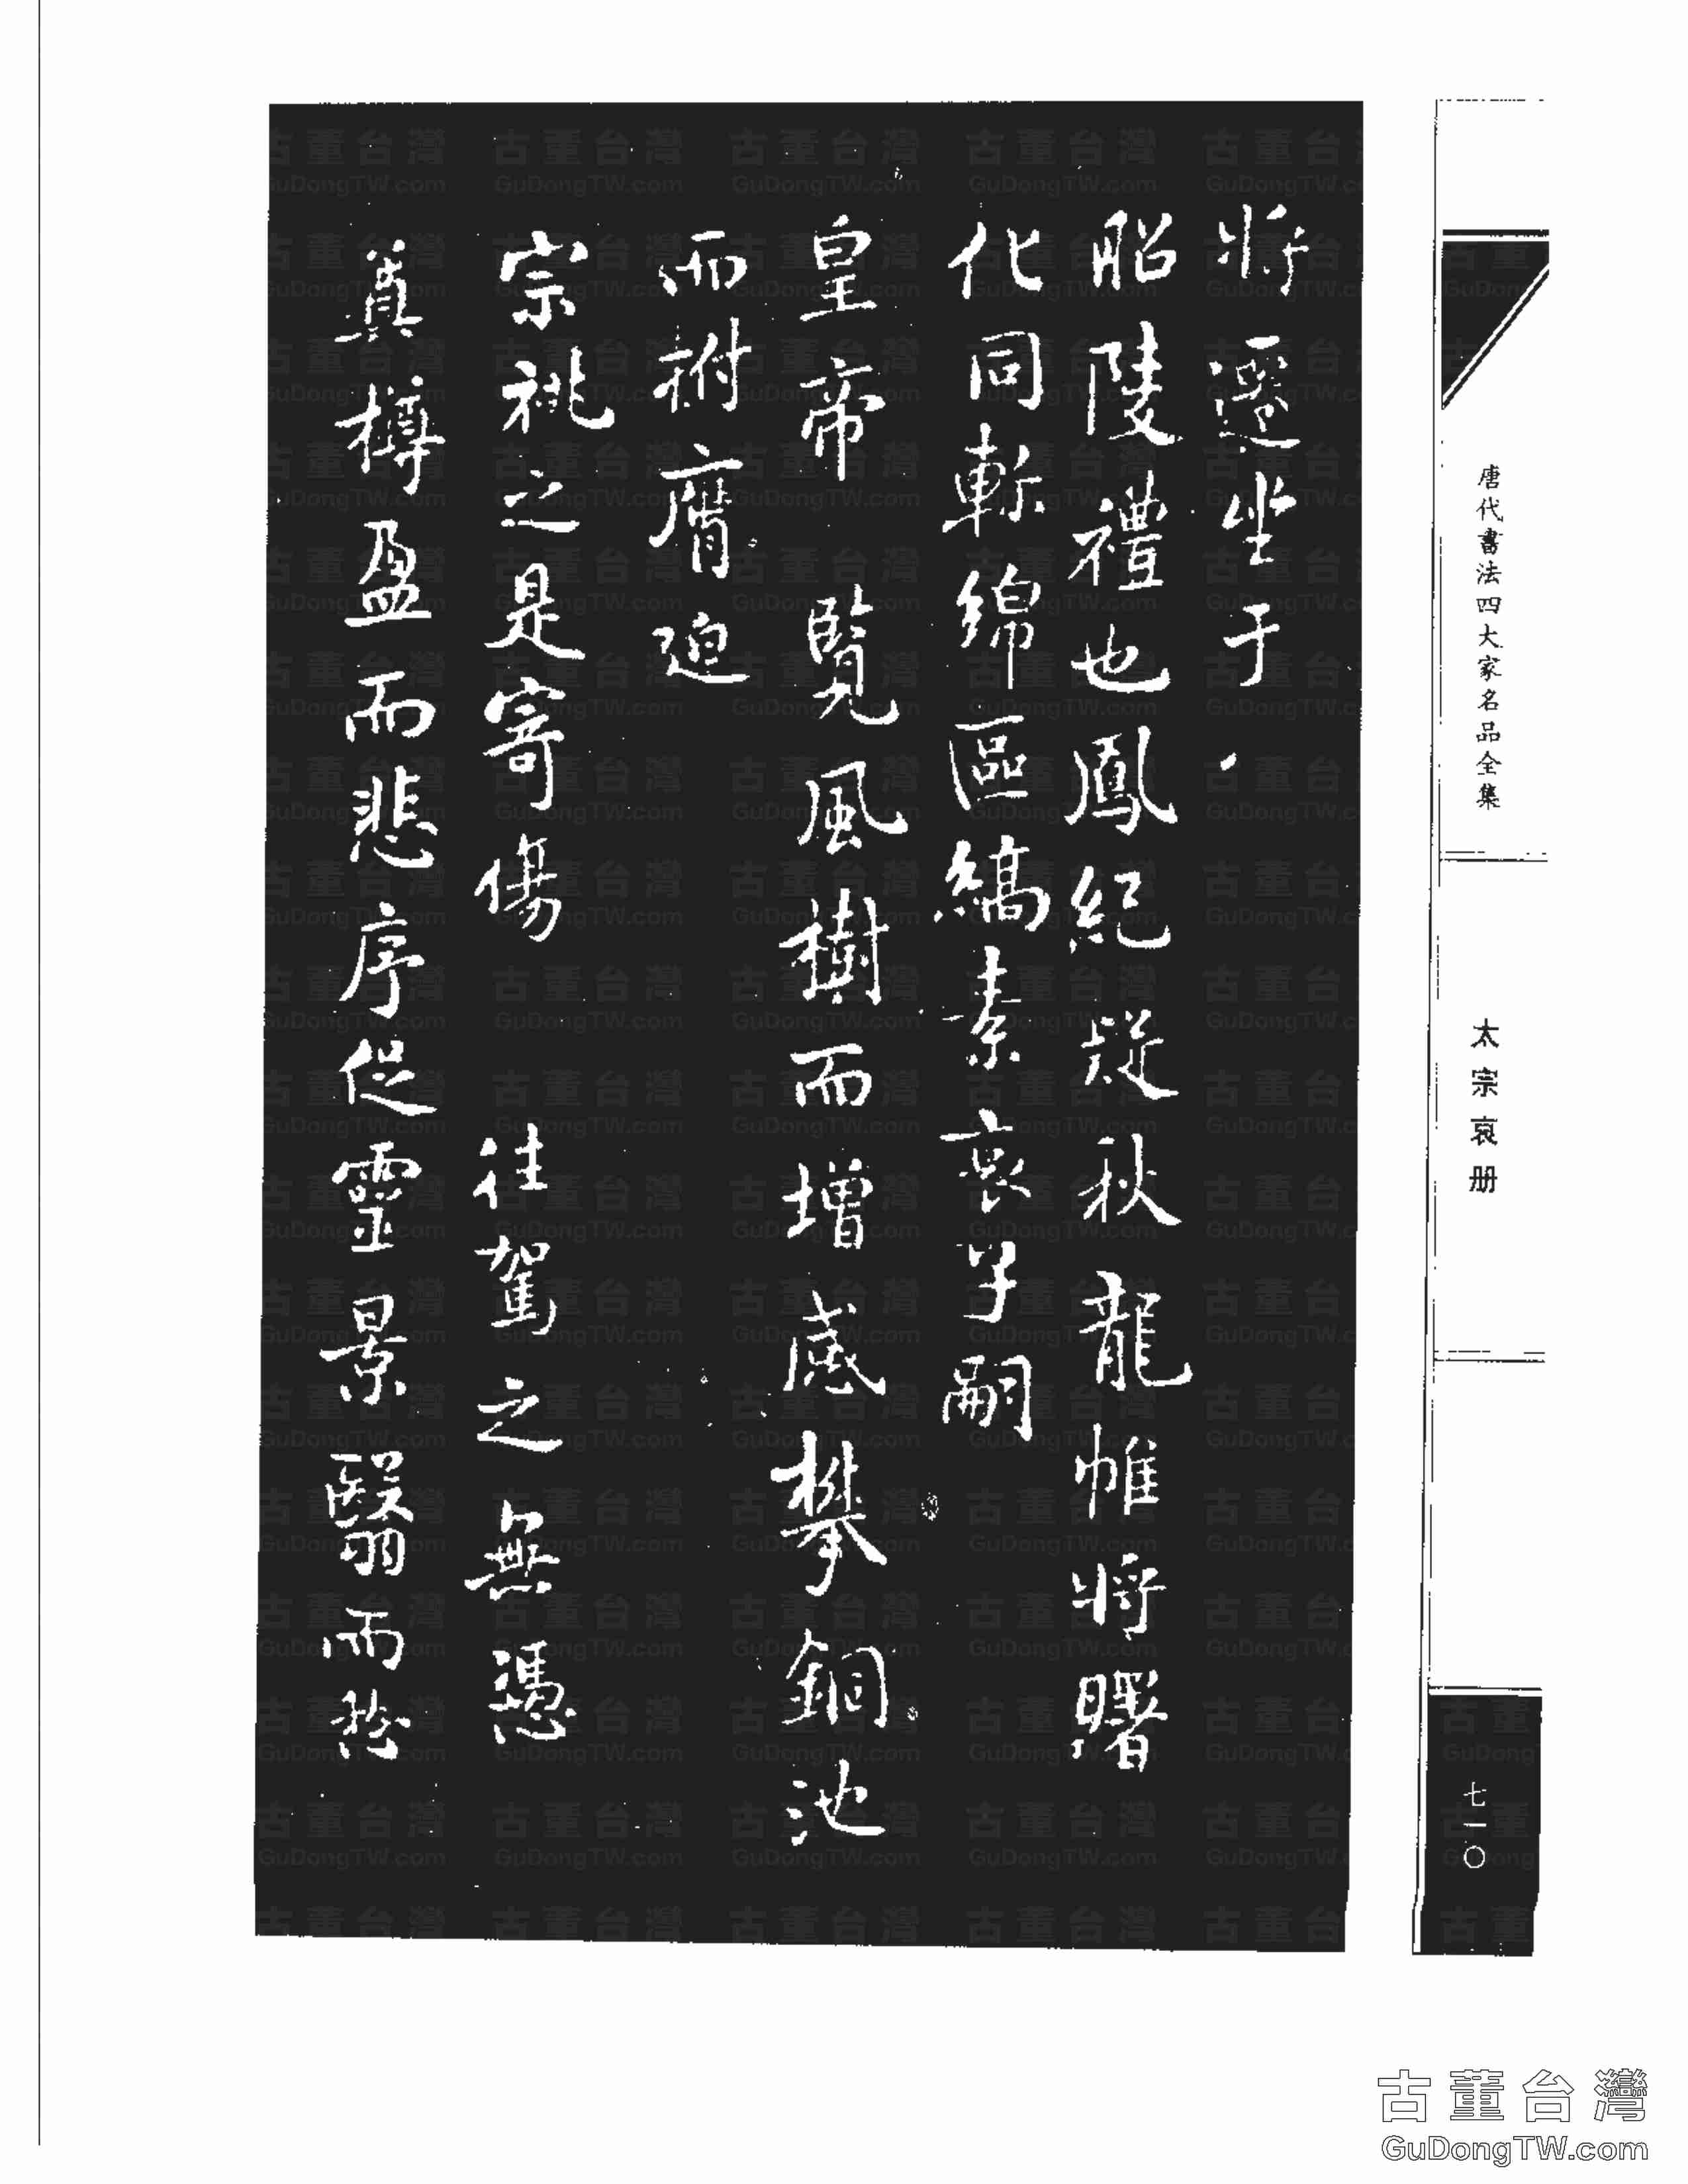 唐代書法四大家名品全集
太宗哀册
七一〇
將遷坐于
昭陵禮也鳳紀疑秋龍帷將曙
化同軒綿區縞素哀子嗣
皇帝覽風樹而增感攀銅池
而拊膺迫
宗祧之是寄傷 往駕之無憑
奠樽盈而悲序促靈景翳而愁
古董台灣
GuDongTW.com